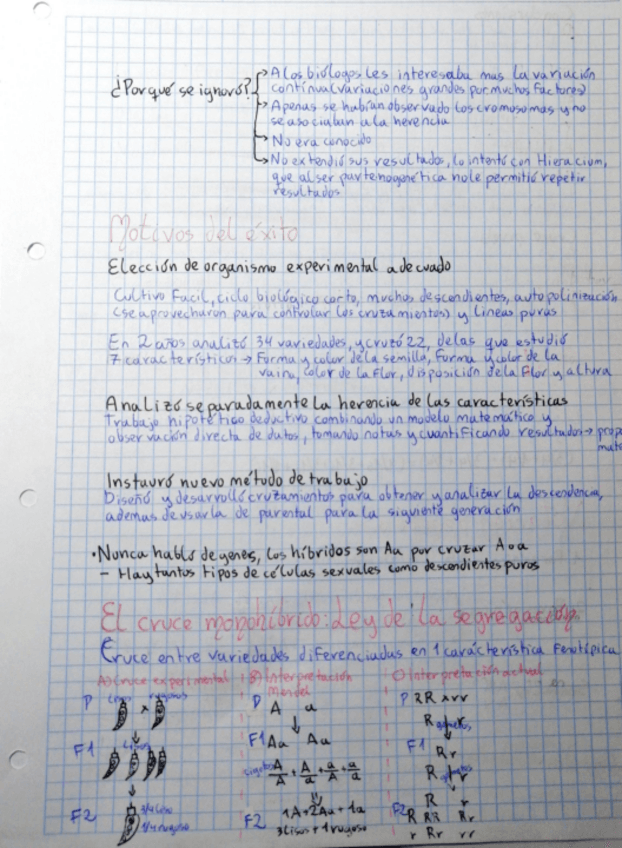 ¿Porqué se ignoró?
A los biólogos les interesaba mas la variación
continua (variaciones grandes por muchos factores)
Apenas se habían observado los cromosomas y no
se asociaban a la herencia
No era conocido
No extendió sus resultados, lo intentó con Hieracium,
que al ser partenogenética no le permitió repetir
resultados
Motivos del éxito
Elección de organismo experimental adecuado
Cultivo Facil, ciclo biológico corto, muchos descendientes, autopolinización
(se aprovecharon para controlar los cruzamientos) y lineas puras
En 2 años analizó 34 variedades, y cruzó 22, de las que estudió
7 característicos → Forma y color de la semilla, forma y color de la
vaina, color de la flor, disposición de la flor y altura
Analizó separadamente la herencia de las características
Trabajo hipotético deductivo combinando un modelo matemático y
observación directa de datos, tomando notas y cuantificando resultados →
Instauró nuevo método de trabajo
Diseñó y desarrolló cruzamientos para obtener y analizar la descendencia,
ademas de usarla de parental para la siguiente generación
• Nunca habló de genes, los híbridos son Aa por cruzar A o a
– Hay tantos tipos de células sexuales como descendientes puros
El cruce monohíbrido: Ley de la segregación
Cruce entre variedades diferenciadas en 1 carácterística Fenotípica
A) Cruce experimental
P lisos rugosos
x
F1 lisos
F2 3/4 liso
1/4 rugoso
B) Interpretación
Mendel
P A a
F1 Aa Aa
A/A + A/a + a/A + a/a
F2 1A + 2Aa + 1a
3 lisos + 1 rugoso
C) Interpretación actual
P RR x rr
R r
F1 Rr
R r
F2 R r
R RR Rr
r Rr rr